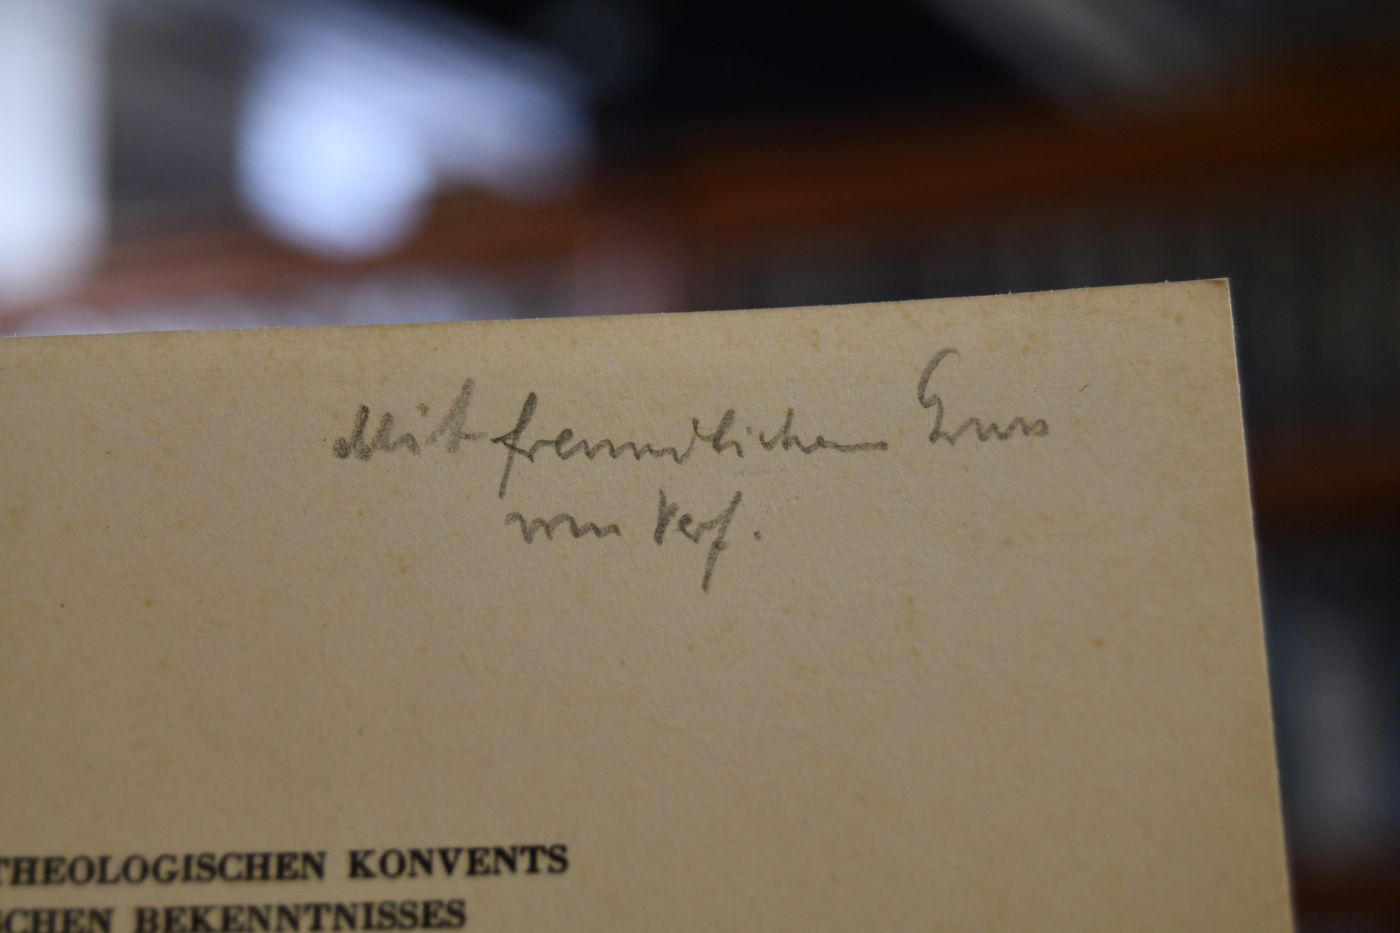 Mit freundlichem Gruss
vom Verf.
THEOLOGISCHEN KONVENTS
SCHEN BEKENNTNISSES